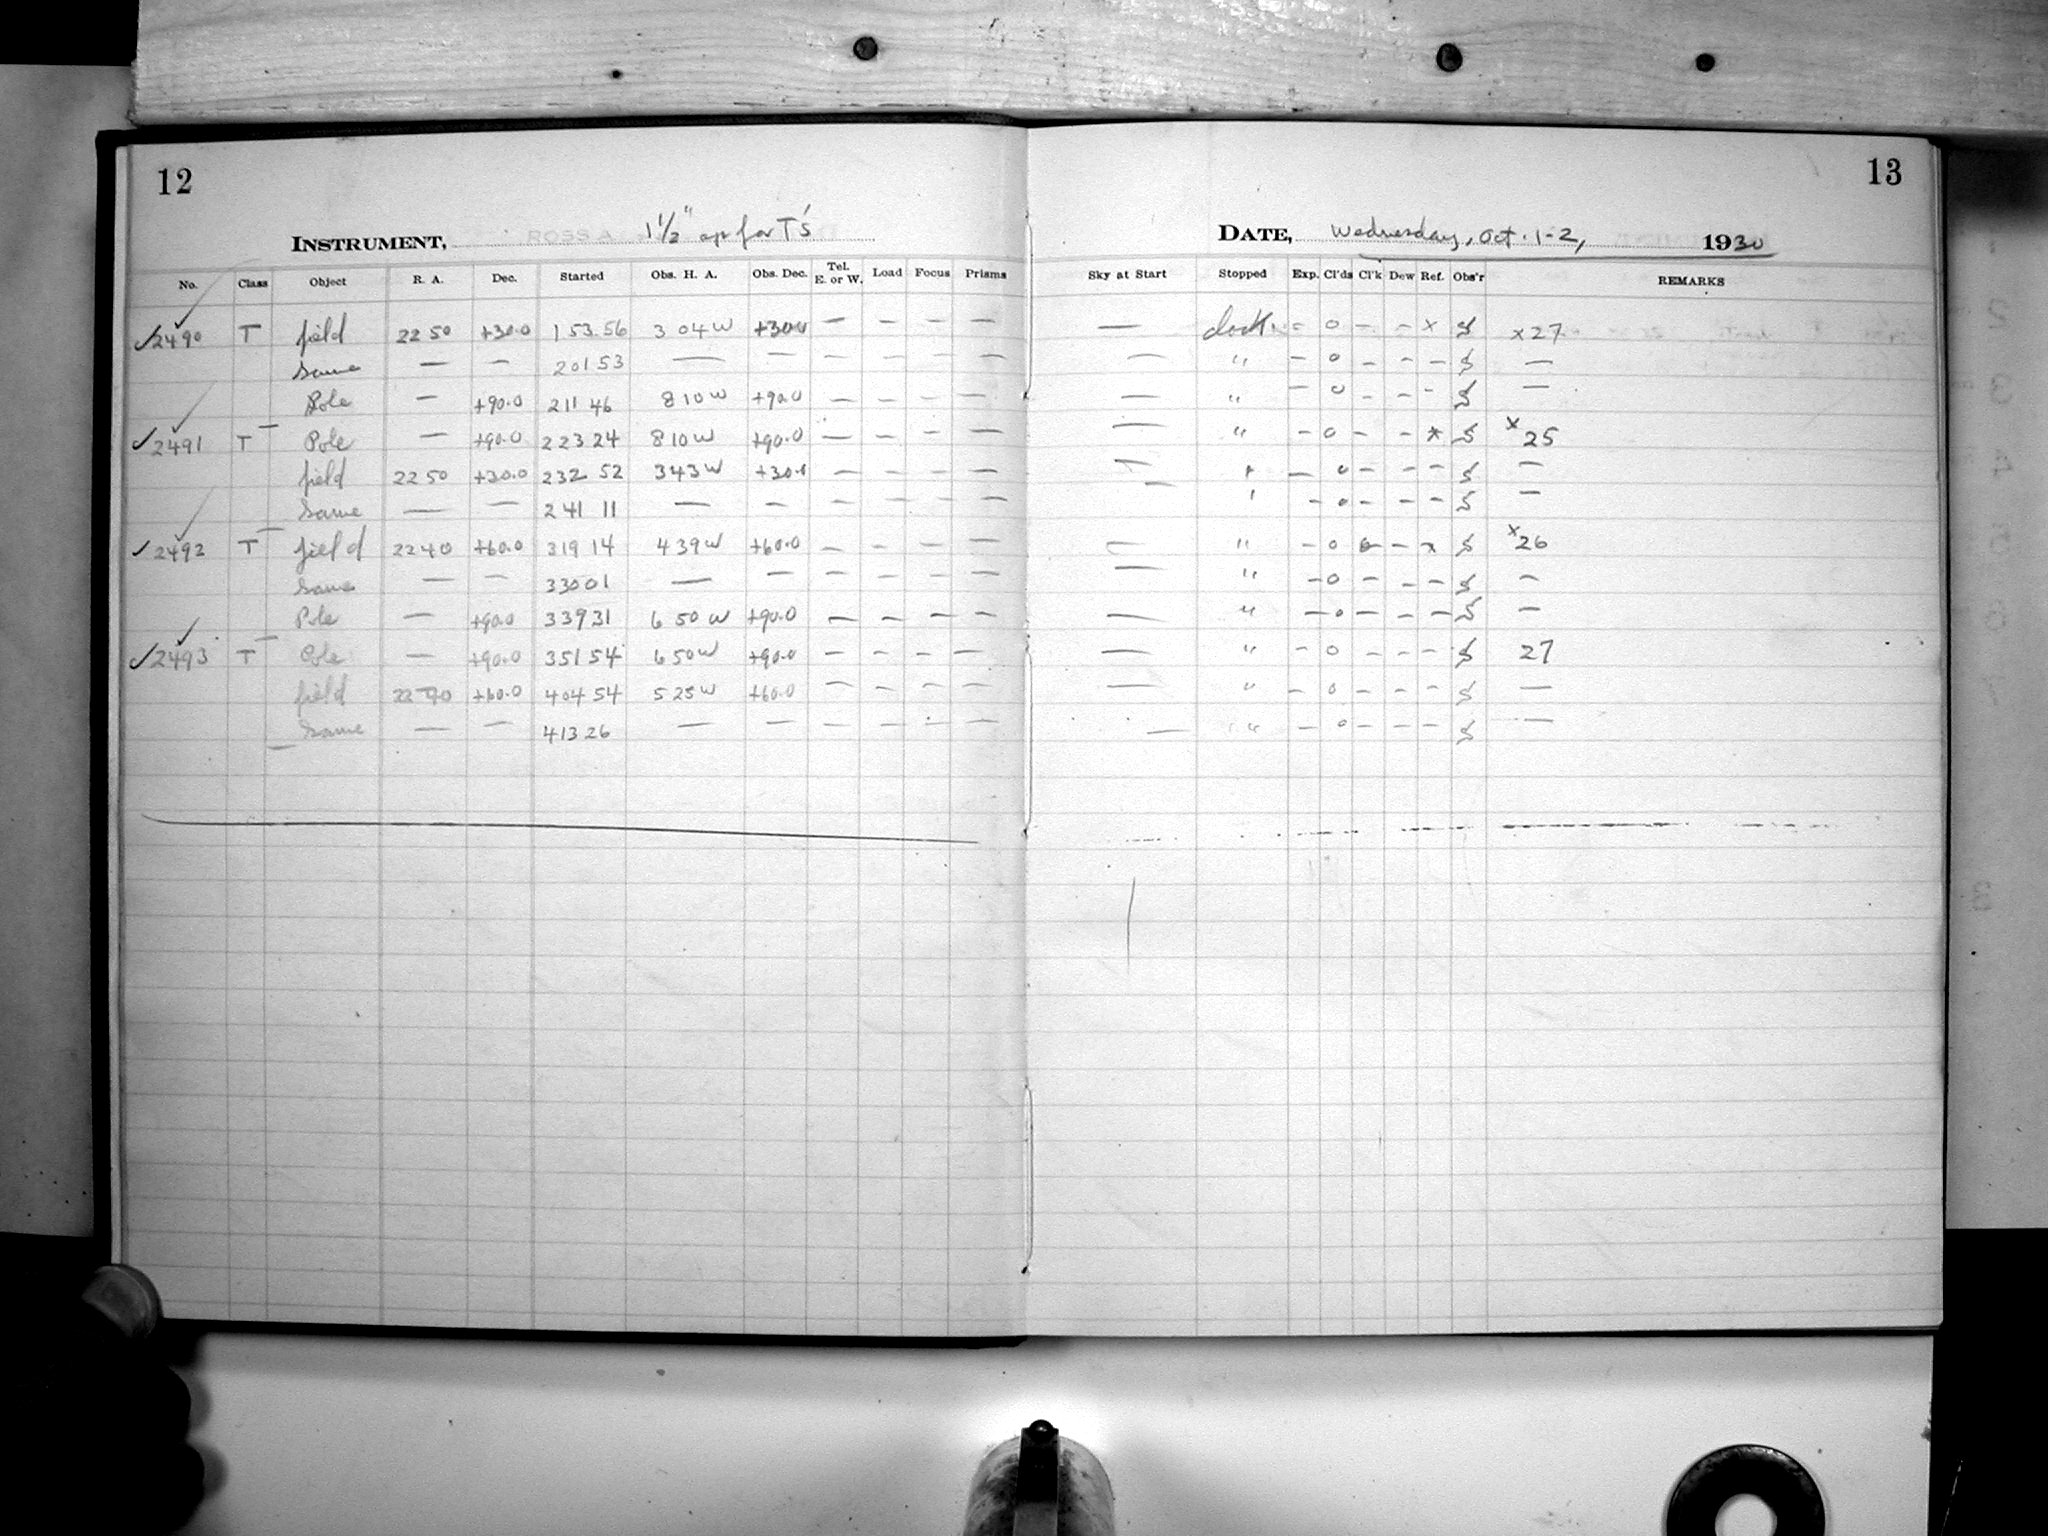 12
INSTRUMENT, 1 1/2" ap for T's
No. Class Object R. A. Dec. Started Obs. H. A. Obs. Dec. Tel. E. or W. Load Focus Prisms
✓2490 T field 22 50 +30.0 1 53 56 3 04 W +30.0 — — — —
Same — — 2 01 53 — — — — — —
Pole — +90.0 2 11 46 8 10 W +90.0 — — — —
✓2491 T Pole — +90.0 2 23 24 8 10 W +90.0 — — — —
field 22 50 +30.0 2 32 52 3 43 W +30.0 — — — —
Same — — 2 41 11 — — — — — —
✓2492 T field 22 40 +60.0 3 19 14 4 39 W +60.0 — — — —
Same — — 3 30 01 — — — — — —
Pole — +90.0 3 39 31 6 50 W +90.0 — — — —
✓2493 T Pole — +90.0 3 51 54 6 50 W +90.0 — — — —
field 22 40 +60.0 4 04 54 5 25 W +60.0 — — — —
Same — — 4 13 26 — — — — — —
13
DATE, Wednesday, Oct. 1-2, 1930
Sky at Start Stopped Exp. Cl'ds Cl'k Dew Ref. Obs'r REMARKS
— clock — 0 — — x S x27
— " — 0 — — — S —
— " — 0 — — — S —
— " — 0 — — x S x25
— " — 0 — — — S —
— " — 0 — — — S —
— " — 0 — — x S x26
— " — 0 — — — S —
— " — 0 — — — S —
— " — 0 — — — S 27
— " — 0 — — — S —
— " — 0 — — — S —